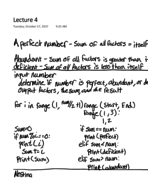 Lecture 4
Tuesday, October 17, 2017
A perfect number - Sum of all factors = itself
Abundant - Sum of all factors is greater than
deficient - Sum of all factors is less than itself
input number
determine if number is perfect, abundant, or
Output factors, the sum and are result
for i in range (1, num/2+1) range (start, End)
Range (1, 3):
1, 2
Sum=0
if sum == num:
if num % i == 0:
print (perfect)
print (i)
elif sum < num:
Sum += i
Print (deficient)
Print (sum)
elif sum > num:
Print (abundant)
Nesting